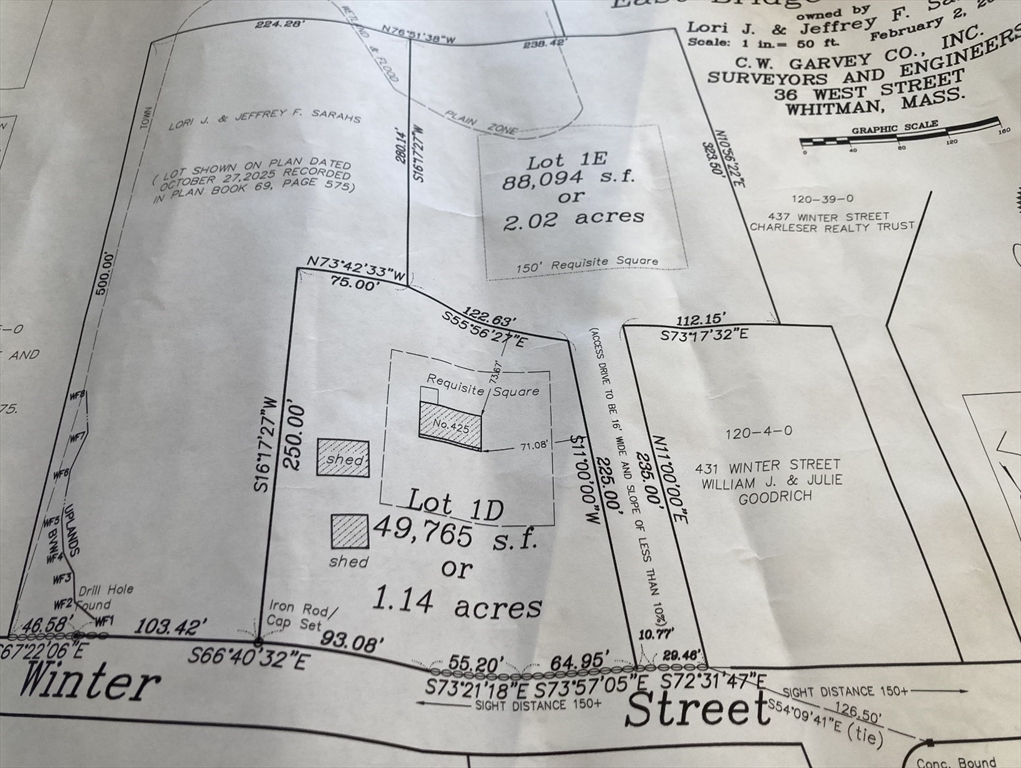 East Bridge
owned by
Lori J. & Jeffrey F. Sa
Scale: 1 in.= 50 ft.
February 2, 20
C.W. GARVEY CO., INC.
SURVEYORS AND ENGINEERS
36 WEST STREET
WHITMAN, MASS.
GRAPHIC SCALE
0 40 80 120 160
224.28'
N76°51'38"W
238.42'
WETLAND & FLOOD
PLAIN ZONE
TOWN
LORI J. & JEFFREY F. SARAHS
( LOT SHOWN ON PLAN DATED
OCTOBER 27,2025 RECORDED
IN PLAN BOOK 69, PAGE 575)
280.14'
S16°17'27"W
Lot 1E
88,094 s.f.
or
2.02 acres
150' Requisite Square
N10°56'22"E
323.50'
120-39-0
437 WINTER STREET
CHARLESER REALTY TRUST
500.00'
N73°42'33"W
75.00'
122.63'
S55°56'27"E
112.15'
S73°17'32"E
-0
AND
75.
Requisite Square
73.67'
No.425
71.08'
S16°17'27"W
250.00'
shed
Lot 1D
49,765 s.f.
or
1.14 acres
shed
S11°00'00"W
225.00'
(ACCESS DRIVE TO BE 16' WIDE AND SLOPE OF LESS THAN 10%)
N11°00'00"E
235.00'
120-4-0
431 WINTER STREET
WILLIAM J. & JULIE
GOODRICH
WF8
WF7
WF6
WF5
WF4
WF3
WF2
WF1
UPLANDS
BVW
Drill Hole
Found
Iron Rod/
Cap Set
46.58'
103.42'
93.08'
55.20'
64.95'
10.77'
29.46'
S67°22'06"E
S66°40'32"E
S73°21'18"E
S73°57'05"E
S72°31'47"E
SIGHT DISTANCE 150+
SIGHT DISTANCE 150+
Winter
Street
126.50'
S54°09'41"E (tie)
Conc. Bound